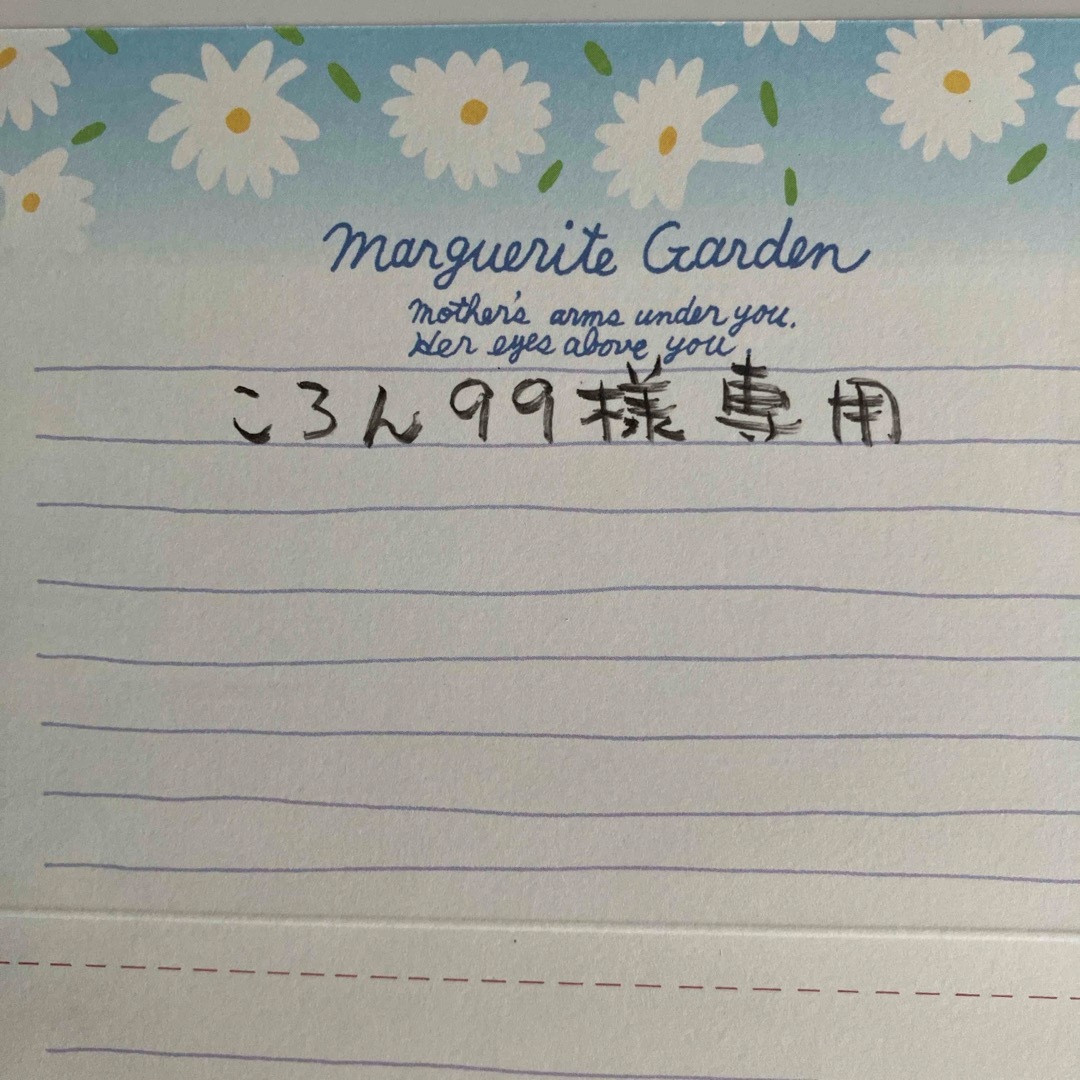 Marguerite Garden
Mother's arms under you.
Her eyes above you.
ころん99様専用